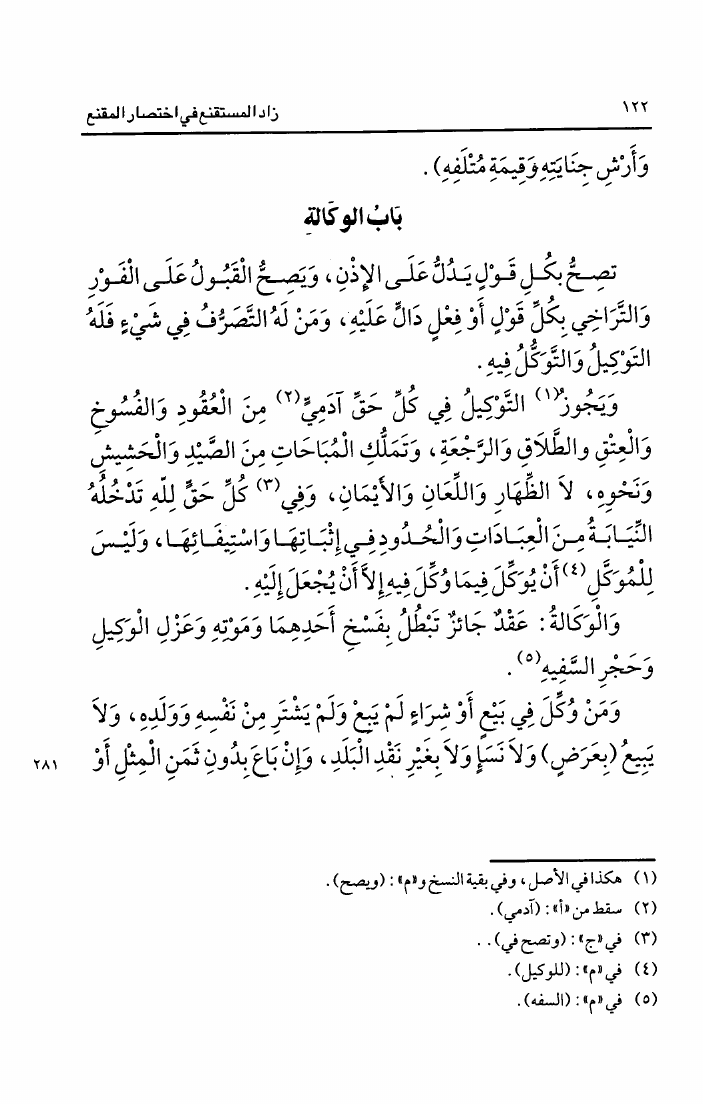 ١٢٢ زاد المستقنع في اختصار المقنع
وَأَرْشِ جِنَايَتِهِ وَقِيمَةِ مُتْلَفِهِ).
بَابُ الوكَالةِ
تصِحُّ بكُلِ قَولٍ يَدُلُّ عَلَى الإِذْنِ، وَيَصِحُّ الْقَبُولُ عَلَى الْفَوْرِ
وَالتَّرَاخِي بِكُلِّ قَوْلٍ أَوْ فِعْلٍ دَالٍّ عَلَيْهِ، وَمَنْ لَهُ التَّصَرُّفُ فِي شَيْءٍ فَلَهُ
التَوْكِيلُ وَالتَّوَكُّلُ فِيهِ.
وَيَجُوزُ(١) التَّوْكِيلُ فِي كُلِّ حَقِّ آدَمِيٍّ(٢) مِنَ الْعُقُودِ وَالفُسُوخِ
وَالْعِتْقِ والطَّلَاقِ وَالرَّجْعَةِ، وَتَمَلُّكِ الْمُبَاحَاتِ مِنَ الصَّيْدِ وَالْحَشِيشِ
وَنَحْوِهِ، لاَ الظِّهَارِ وَاللِّعَانِ وَالأَيْمَانِ، وَفِي(٣) كُلِّ حَقٍّ لِلّهِ تَدْخُلُهُ
النِّيَابَةُ مِنَ الْعِبَادَاتِ وَالْحُدُودِ فِي إِثْبَاتِهَا وَاسْتِيفَائِهَا، وَلَيْسَ
لِلْمُوَكَّلِ(٤) أَنْ يُوَكِّلَ فِيمَا وُكِّلَ فِيهِ إِلاَّ أَنْ يُجْعَلَ إِلَيْهِ.
وَالْوَكَالةُ: عَقْدٌ جَائزٌ تَبْطُلُ بِفَسْخِ أَحَدِهِمَا وَمَوْتِهِ وَعَزْلِ الْوَكِيلِ
وَحَجْرِ السَّفِيهِ(٥).
وَمَنْ وُكِّلَ فِي بَيْعٍ أَوْ شِرَاءٍ لَمْ يَبِعْ وَلَمْ يَشْتَرِ مِنْ نَفْسِهِ وَوَلَدِهِ، وَلاَ
يَبِيعُ (بِعَرَضٍ) وَلاَ نَسَإٍ وَلاَ بِغَيْرِ نَقْدِ الْبَلَدِ، وَإِنْ بَاعَ بِدُونِ ثَمَنِ الْمِثْلِ أَوْ ٢٨١
(١) هكذا في الأصل، وفي بقية النسخ و«م»: (ويصح).
(٢) سقط من «أ»: (آدمي).
(٣) في «ج»: (وتصح في). .
(٤) في «م»: (للوكيل).
(٥) في «م»: (السفه).